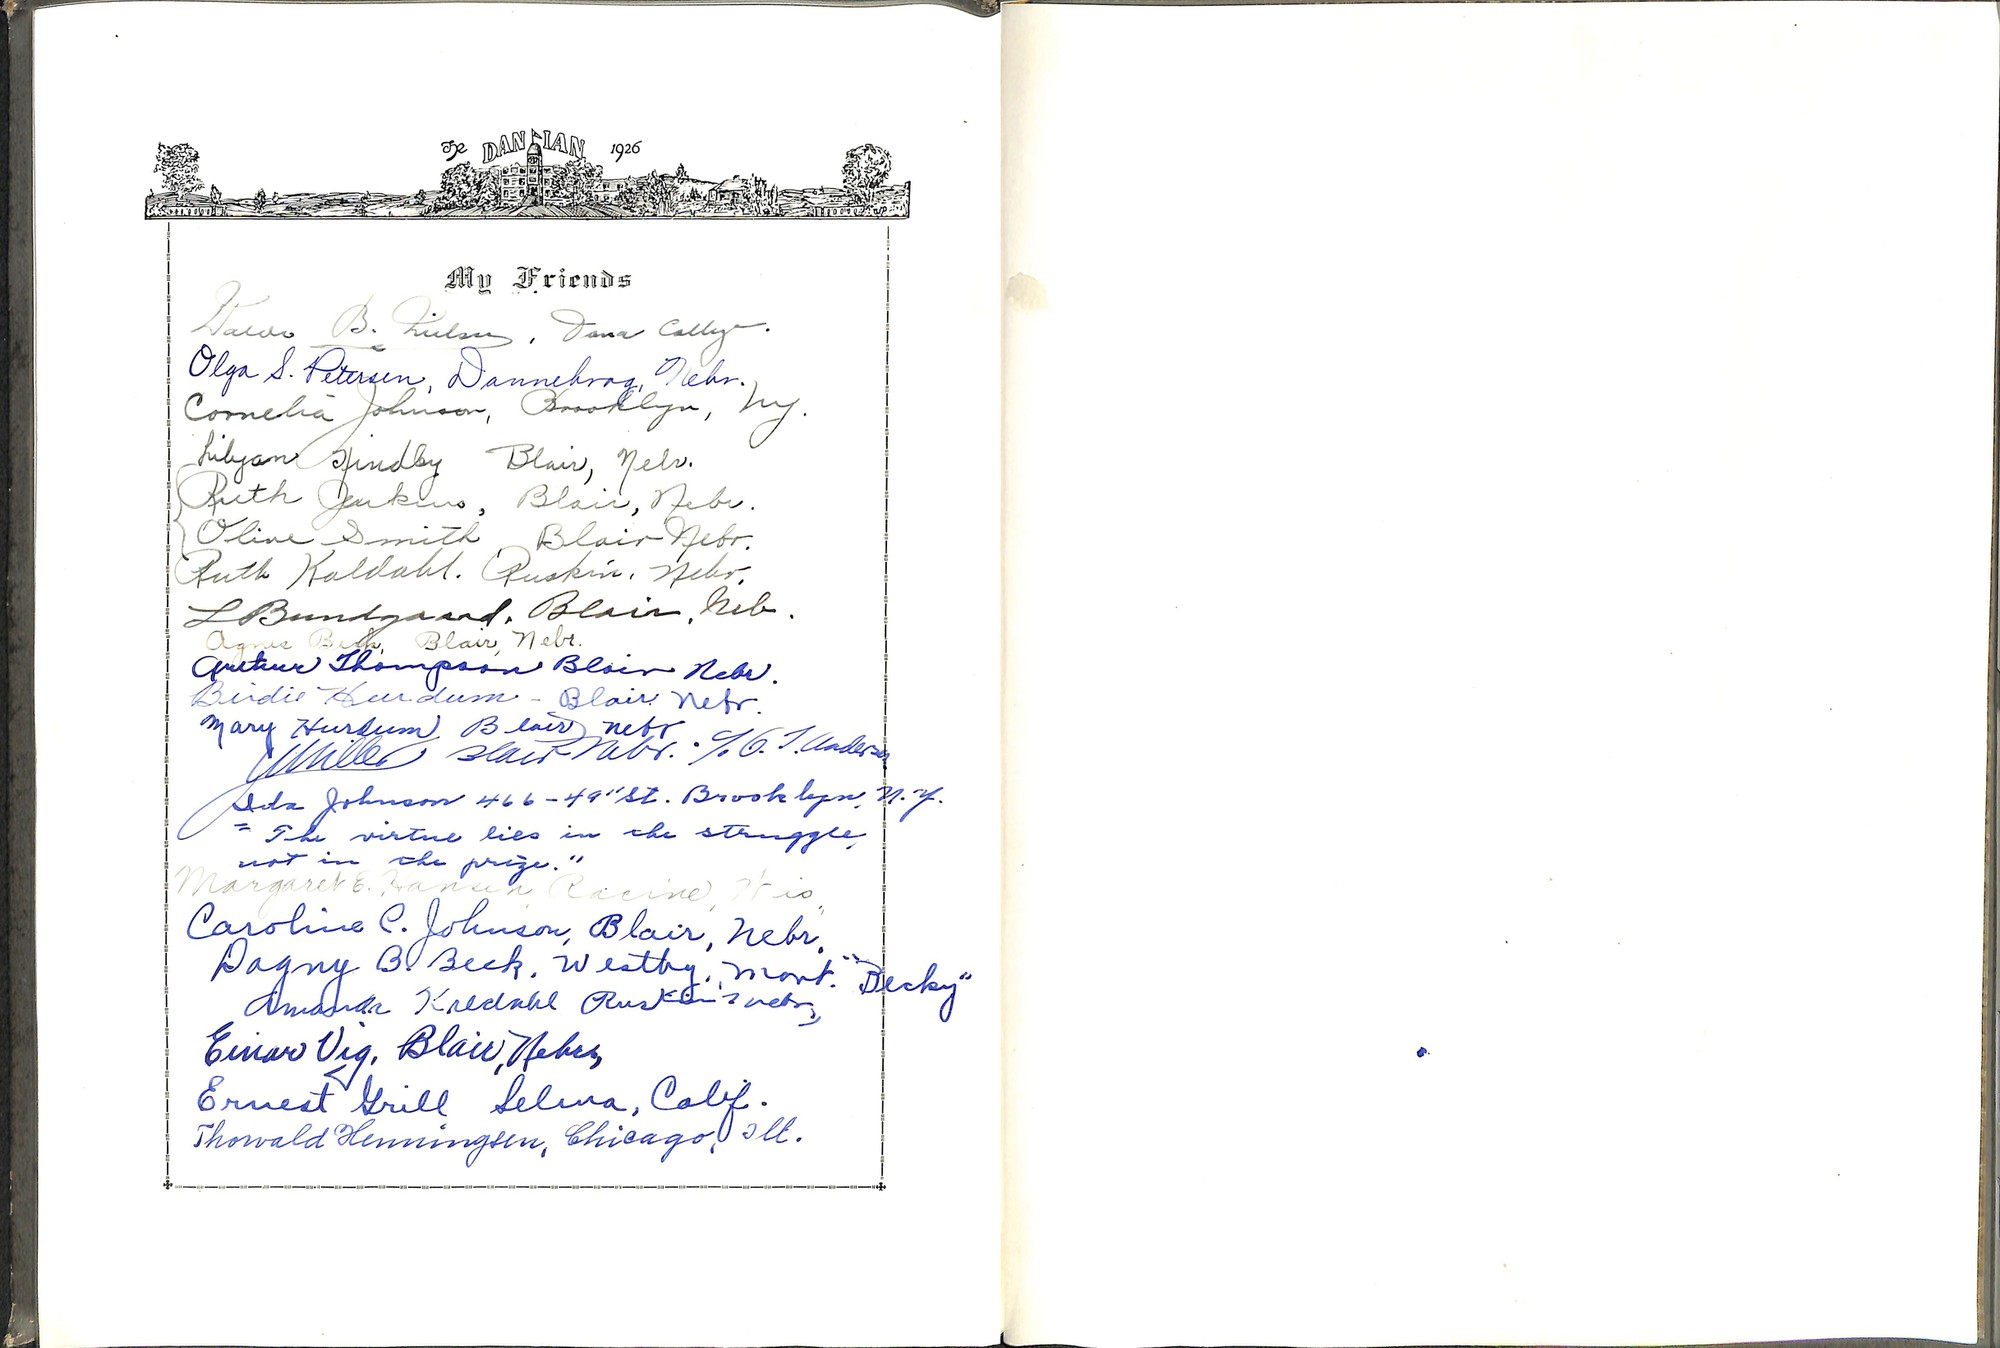 The DANIAN 1926
My Friends
B. Nielsen, Dana College.
Olga S. Petersen, Dannebrog, Nebr.
Cornelia Johnson, Brooklyn, N.y.
Lilyan Lindby Blair, Nebr.
Ruth Jenkins, Blair, Nebr.
Olive Smith, Blair Nebr.
Ruth Kaldahl. Ruskin, Nebr.
L Bundgaard, Blair, Neb.
Agnes Beck, Blair, Nebr.
Arthur Thompson Blair Nebr.
Birdie Hurdum - Blair Nebr.
Mary Hurdum, Blair, nebr
Miller Blair Nebr. c/o
Ida Johnson 466-49" St. Brooklyn, N.Y.
"The virtue lies in the struggle,
not in the prize."
Margaret E. Hansen, Racine, Wis.
Caroline C. Johnson, Blair, Nebr.
Dagny B. Beck, Westby, Mont. "Becky"
Amanda Kaldahl Ruskin Nebr,
Einar Vig, Blair, Nebr,
Ernest Grill Selma, Calif.
Thorvald Henningsen, Chicago, Ill.